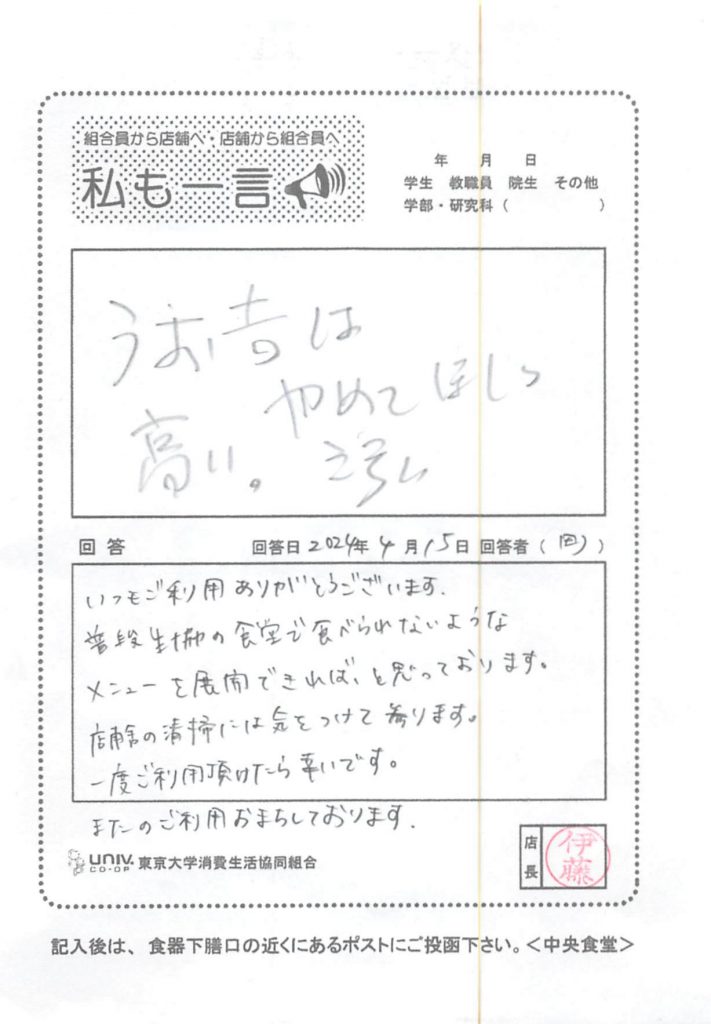 組合員から店舗へ・店舗から組合員へ
私も一言
年 月 日
学生 教職員 院生 その他
学部・研究科( )
は
やめてほしい
高い。
回答 回答日 2024年 4月 15日 回答者( )
いつもご利用ありがとうございます.
普段生協の食堂で食べられないような
メニューを展開できれば、と思っております。
店舗の清掃には気をつけて参ります。
一度ご利用頂けたら幸いです。
またのご利用おまちしております.
UNIV. CO-OP 東京大学消費生活協同組合
店長 伊藤
記入後は、食器下膳口の近くにあるポストにご投函下さい。<中央食堂>